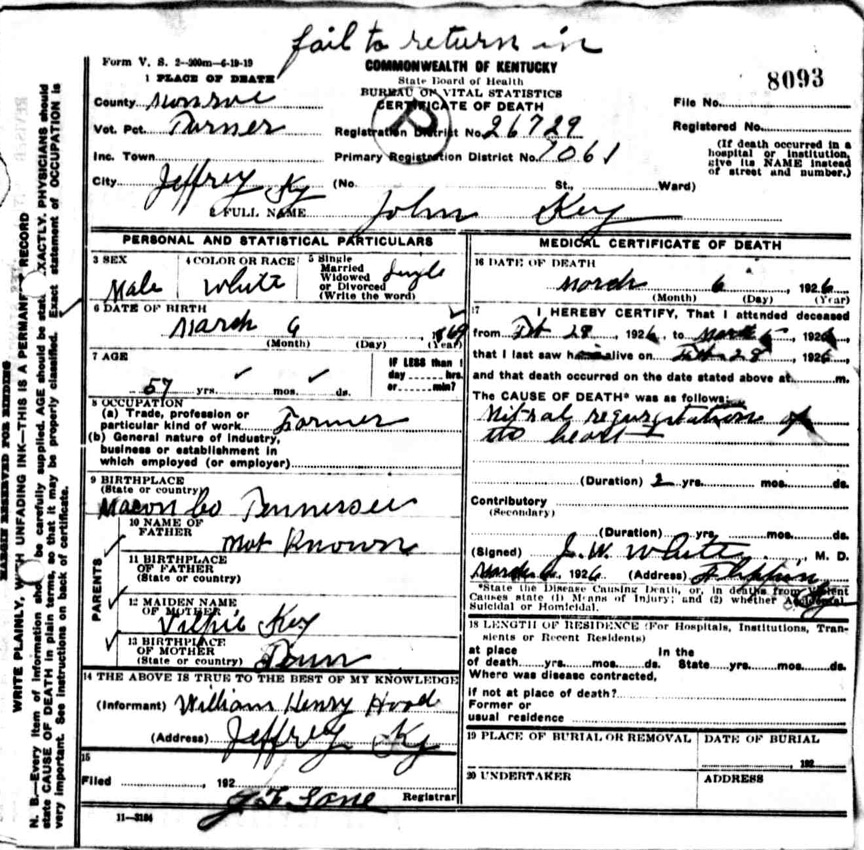 fail to return in
Form V. S. 2-200m-6-19-19
COMMONWEALTH OF KENTUCKY
State Board of Health
BUREAU OF VITAL STATISTICS
CERTIFICATE OF DEATH
8093
1 PLACE OF DEATH
County Monroe
File No.
Vot. Pct. Turner
Registration District No. 26729
Registered No.
Inc. Town
Primary Registration District No. 7061
(If death occurred in a
hospital or institution,
give its NAME instead
of street and number.)
City Jeffrey Ky (No. St., Ward)
2 FULL NAME John Key
PERSONAL AND STATISTICAL PARTICULARS
3 SEX
Male
4 COLOR OR RACE
White
5 Single
Married
Widowed
or Divorced
(Write the word)
Single
6 DATE OF BIRTH
March 6
(Month) (Day) (Year)
7 AGE
57 yrs. mos. ds.
IF LESS than 1
day hrs.
or min?
8 OCCUPATION
(a) Trade, profession or
particular kind of work Farmer
(b) General nature of industry,
business or establishment in
which employed (or employer)
9 BIRTHPLACE
(State or country)
Macon Co Tennessee
PARENTS
10 NAME OF
FATHER
Not Known
11 BIRTHPLACE
OF FATHER
(State or country)
12 MAIDEN NAME
OF MOTHER
Key
13 BIRTHPLACE
OF MOTHER
(State or country) Tenn
14 THE ABOVE IS TRUE TO THE BEST OF MY KNOWLEDGE
(Informant) William Henry Hood
(Address) Jeffrey Ky
15
Filed , 192
Registrar
11-3184
MEDICAL CERTIFICATE OF DEATH
16 DATE OF DEATH
March 6, 1926
(Month) (Day) (Year)
17 I HEREBY CERTIFY, That I attended deceased
from Feb 28, 1926, to March 5, 1926,
that I last saw h alive on Feb 28, 1926,
and that death occurred on the date stated above at m.
The CAUSE OF DEATH* was as follows:
Mitral regurgitation of
the heart
(Duration) 2 yrs. mos. ds.
Contributory
(Secondary)
(Duration) yrs. mos. ds.
(Signed) J. W. White, M. D.
March 6, 1926 (Address) Flippin
Ky
*State the Disease Causing Death, or, in deaths from Violent
Causes state (1) Means of Injury; and (2) whether Accidental
Suicidal or Homicidal.
18 LENGTH OF RESIDENCE (For Hospitals, Institutions, Tran-
sients or Recent Residents)
at place In the
of death yrs. mos. ds. State yrs. mos. ds.
Where was disease contracted,
if not at place of death?
Former or
usual residence
19 PLACE OF BURIAL OR REMOVAL
DATE OF BURIAL
, 192
20 UNDERTAKER
ADDRESS
MARGIN RESERVED FOR BINDING
WRITE PLAINLY, WITH UNFADING INK—THIS IS A PERMANENT RECORD
N. B.—Every item of information should be carefully supplied. AGE should be stated EXACTLY. PHYSICIANS should
state CAUSE OF DEATH in plain terms, so that it may be properly classified. Exact statement of OCCUPATION is
very important. See instructions on back of certificate.